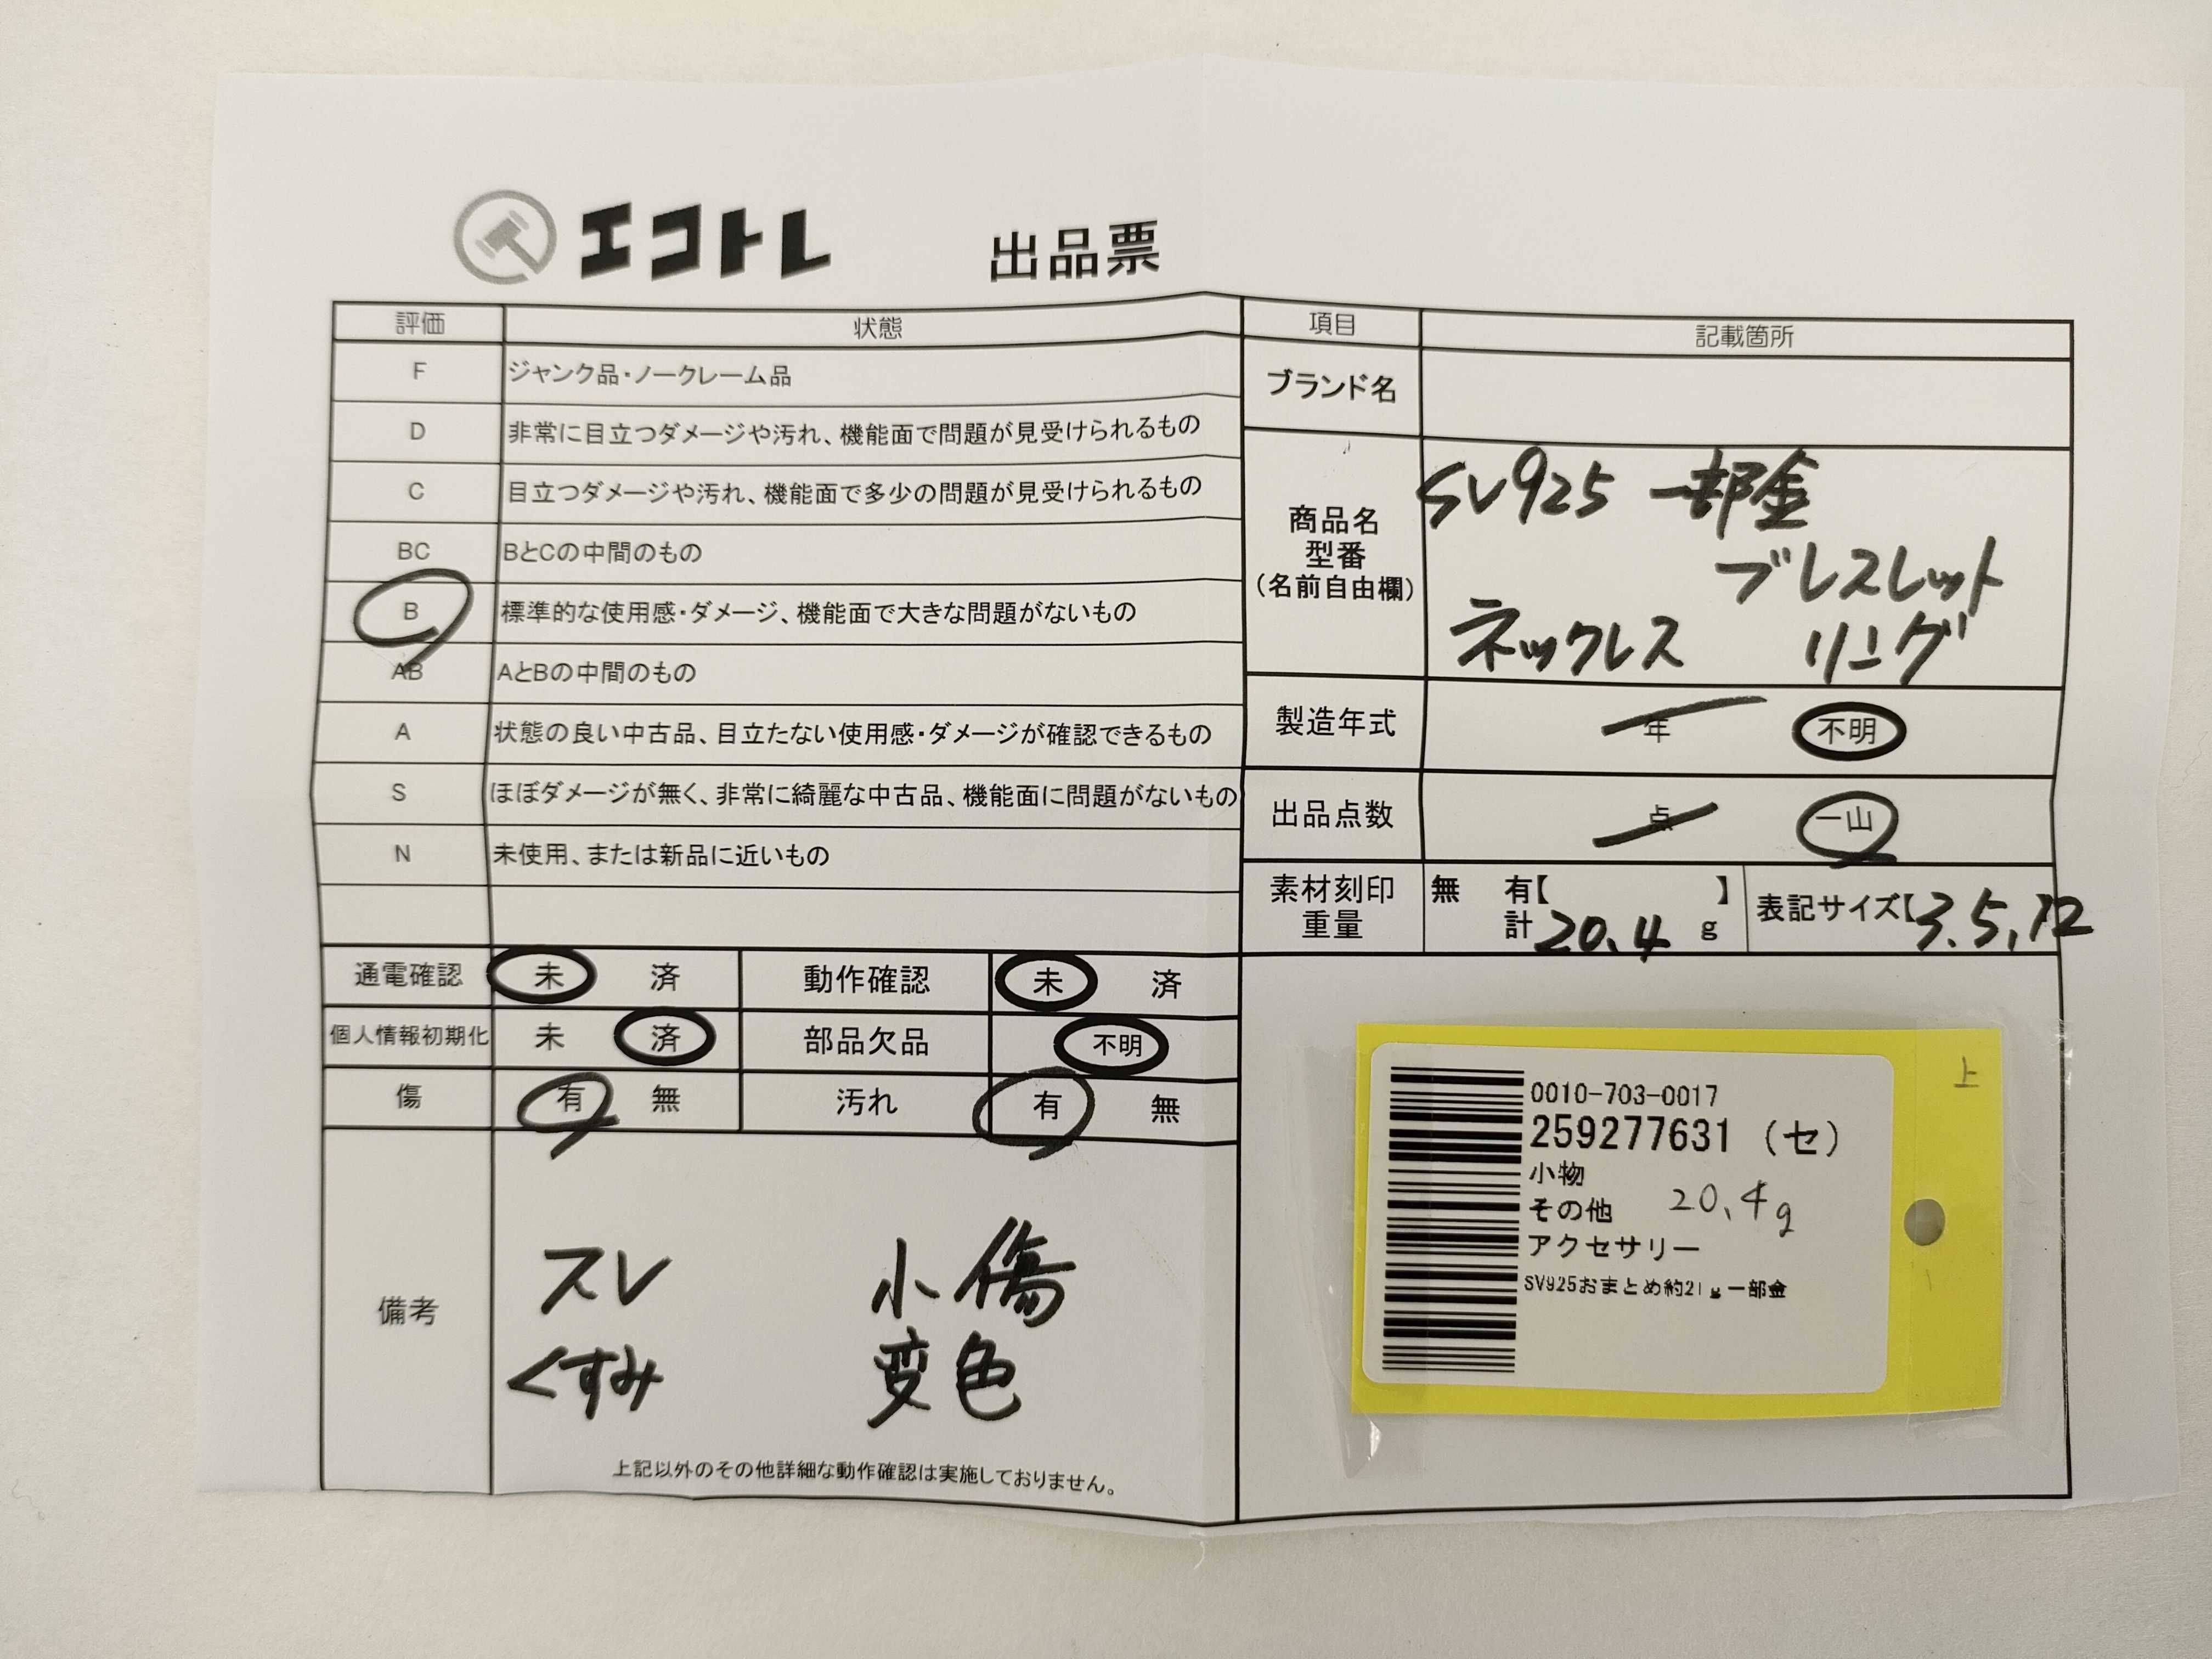 エコトレ 出品票
評価 状態
F ジャンク品・ノークレーム品
D 非常に目立つダメージや汚れ、機能面で問題が見受けられるもの
C 目立つダメージや汚れ、機能面で多少の問題が見受けられるもの
BC BとCの中間のもの
B 標準的な使用感・ダメージ、機能面で大きな問題がないもの
AB AとBの中間のもの
A 状態の良い中古品、目立たない使用感・ダメージが確認できるもの
S ほぼダメージが無く、非常に綺麗な中古品、機能面に問題がないもの
N 未使用、または新品に近いもの
通電確認 未 済 動作確認 未 済
個人情報初期化 未 済 部品欠品 不明
傷 有 無 汚れ 有 無
備考
スレ 小傷
くすみ 変色
上記以外のその他詳細な動作確認は実施しておりません。
項目 記載箇所
ブランド名
商品名
型番
(名前自由欄)
SV925 一部金
ブレスレット
ネックレス リング
製造年式 年 不明
出品点数 点 一山
素材刻印 無 有【 】
重量 計 20.4 g
表記サイズ【3.5,12
上
0010-703-0017
259277631 (セ)
小物
その他 20.4g
アクセサリー
SV925おまとめ約21g一部金